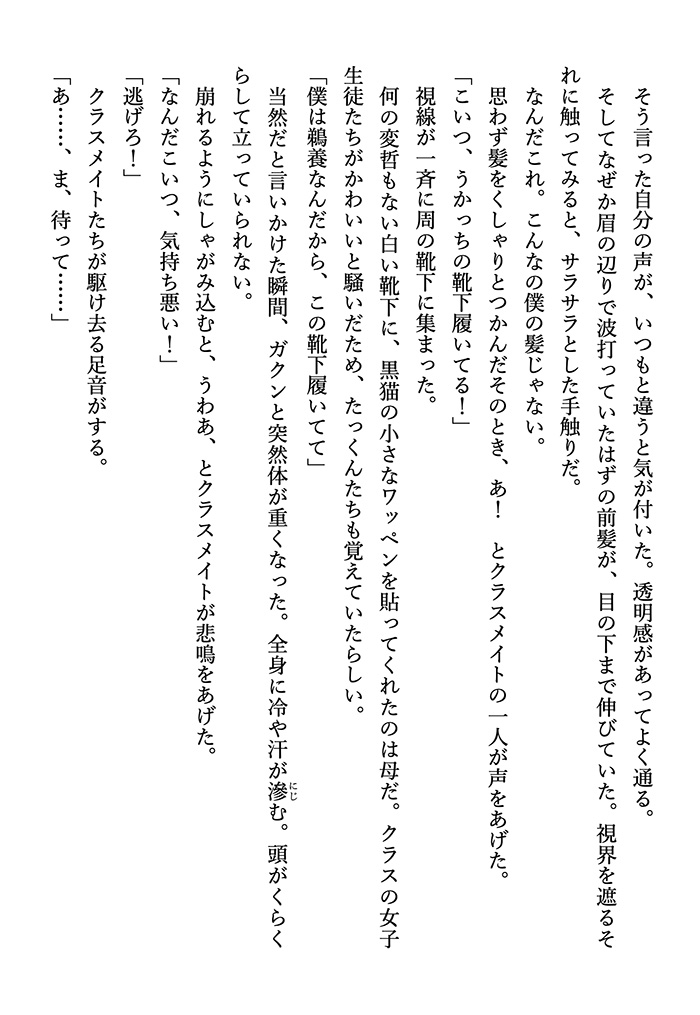 そう言った自分の声が、いつもと違うと気が付いた。透明感があってよく通る。
　そしてなぜか眉の辺りで波打っていたはずの前髪が、目の下まで伸びていた。視界を遮るそ
れに触ってみると、サラサラとした手触りだ。
　なんだこれ。こんなの僕の髪じゃない。
　思わず髪をくしゃりとつかんだそのとき、あ！　とクラスメイトの一人が声をあげた。
「こいつ、うかっちの靴下履いてる！」
　視線が一斉に周の靴下に集まった。
　何の変哲もない白い靴下に、黒猫の小さなワッペンを貼ってくれたのは母だ。クラスの女子
生徒たちがかわいいと騒いだため、たっくんたちも覚えていたらしい。
「僕は鵜養なんだから、この靴下履いてて」
　当然だと言いかけた瞬間、ガクンと突然体が重くなった。全身に冷や汗が滲にじむ。頭がくらく
らして立っていられない。
　崩れるようにしゃがみ込むと、うわあ、とクラスメイトが悲鳴をあげた。
「なんだこいつ、気持ち悪い！」
「逃げろ！」
　クラスメイトたちが駆け去る足音がする。
「あ……、ま、待って……」